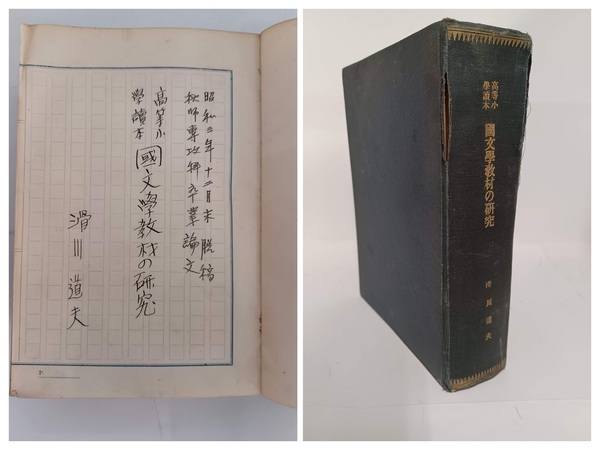 昭和三年十二月末 脱稿
秋師専攻科卒業論文
高等小
學讀本
國文學教材の研究
滑川道夫
高等小
學讀本
國文學教材の研究
滑川道夫